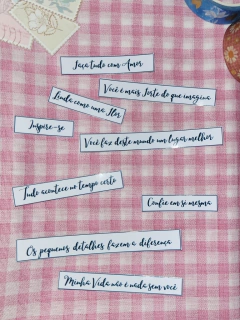 Faça tudo com Amor
Você é mais forte do que imagina
Linda como uma Flor
Inspire-se
Você faz deste mundo um lugar melhor
Tudo acontece no tempo certo
Confie em si mesma
Os pequenos detalhes fazem a diferença
Minha Vida não é nada sem você